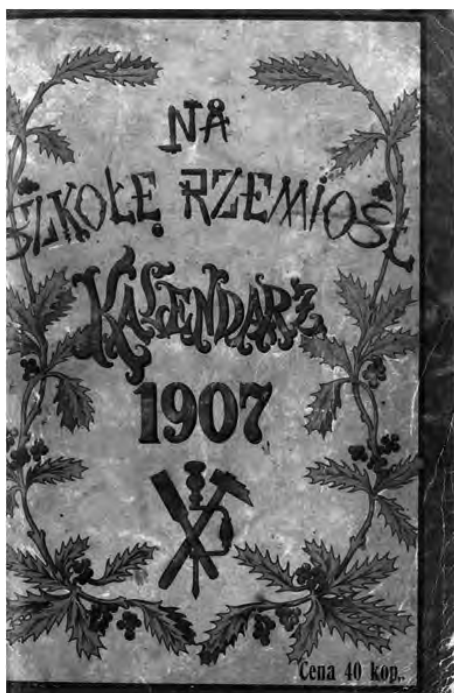 NA
SZKOŁĘ RZEMIOSŁ
KALENDARZ
1907
Cena 40 kop.